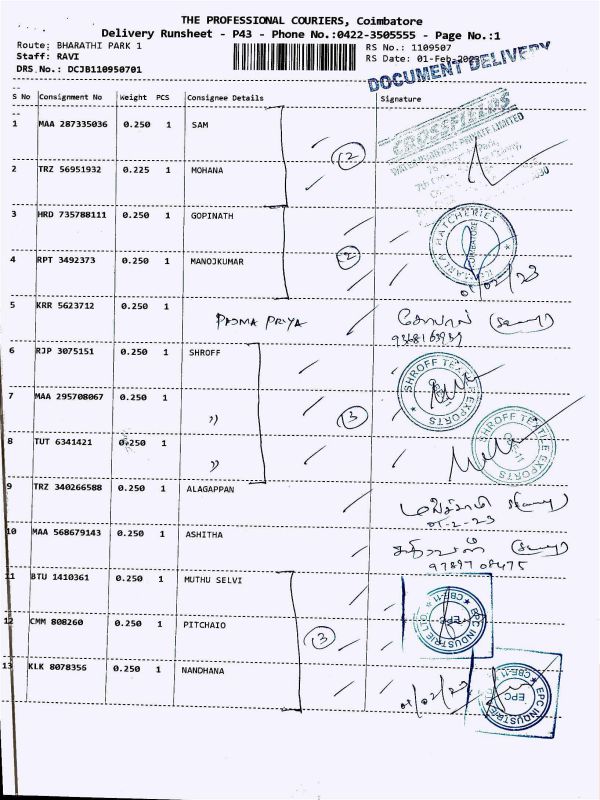 THE PROFESSIONAL COURIERS, Coimbatore
Delivery Runsheet - P43 - Phone No.:0422-3505555 - Page No.:1
Route: BHARATHI PARK 1 RS No.: 1109507
Staff: RAVI RS Date: 01-Feb-2023
DRS No.: DCJB110950701
DOCUMENT DELIVERY
S No Consignment No Weight PCS Consignee Details Signature
1 MAA 287335036 0.250 1 SAM
CROSSFIELDS
WATER PURIFIERS PRIVATE LIMITED
2
2 TRZ 56951932 0.225 1 MOHANA
3 HRD 735788111 0.250 1 GOPINATH
HATCHERIES
COIMBATORE
2
4 RPT 3492373 0.250 1 MANOJKUMAR
01/02/23
5 KRR 5623712 0.250 1 PADMA PRIYA
6 RJP 3075151 0.250 1 SHROFF
SHROFF TEXTILE EXPORTS
7 MAA 295708067 0.250 1 "
3
SHROFF TEXTILE EXPORTS
CBE-11
8 TUT 6341421 0.250 1 "
9 TRZ 340266588 0.250 1 ALAGAPPAN
01-2-23
10 MAA 568679143 0.250 1 ASHITHA
9789708475
11 BTU 1410361 0.250 1 MUTHU SELVI
EPC INDUSTRIE LTD
CBE-11
EPC
12 CMM 808260 0.250 1 PITCHAIO
3
13 KLK 8078356 0.250 1 NANDHANA
01/02/23
EPC INDUSTRIE
CBE-11
EPC